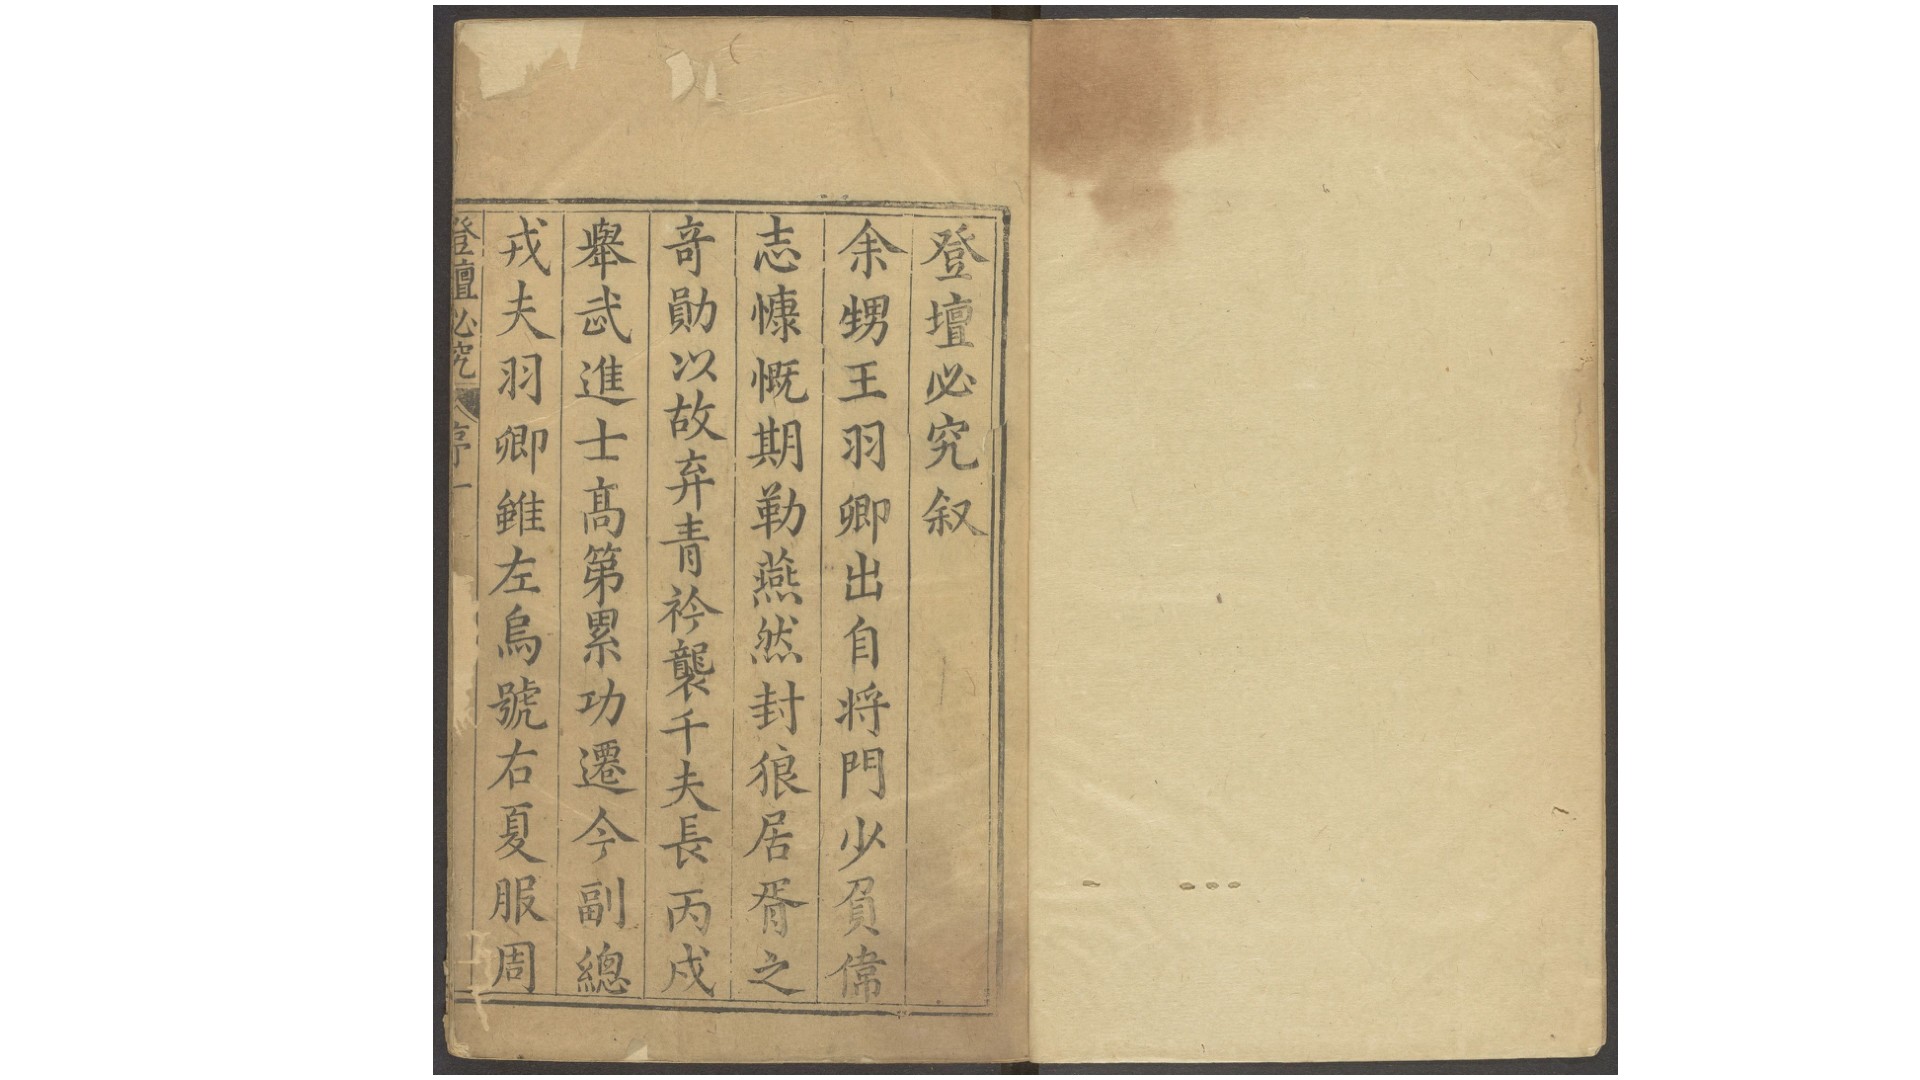 登壇必究叙
余甥王羽卿出自将門少負偉
志慷慨期勒燕然封狼居胥之
竒勛以故弃青衿襲千夫長丙戌
舉武進士髙第累功遷今副總
戎夫羽卿雖左烏號右夏服周
登壇必究 序 一